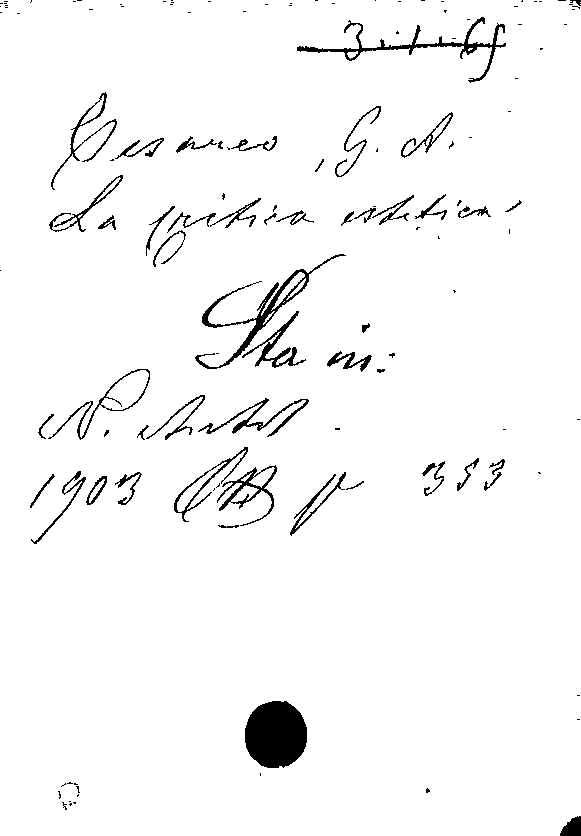 3.1.65
Cesareo, G. A.
La critica estetica,
Sta in:
N. Antol
1903 p 353